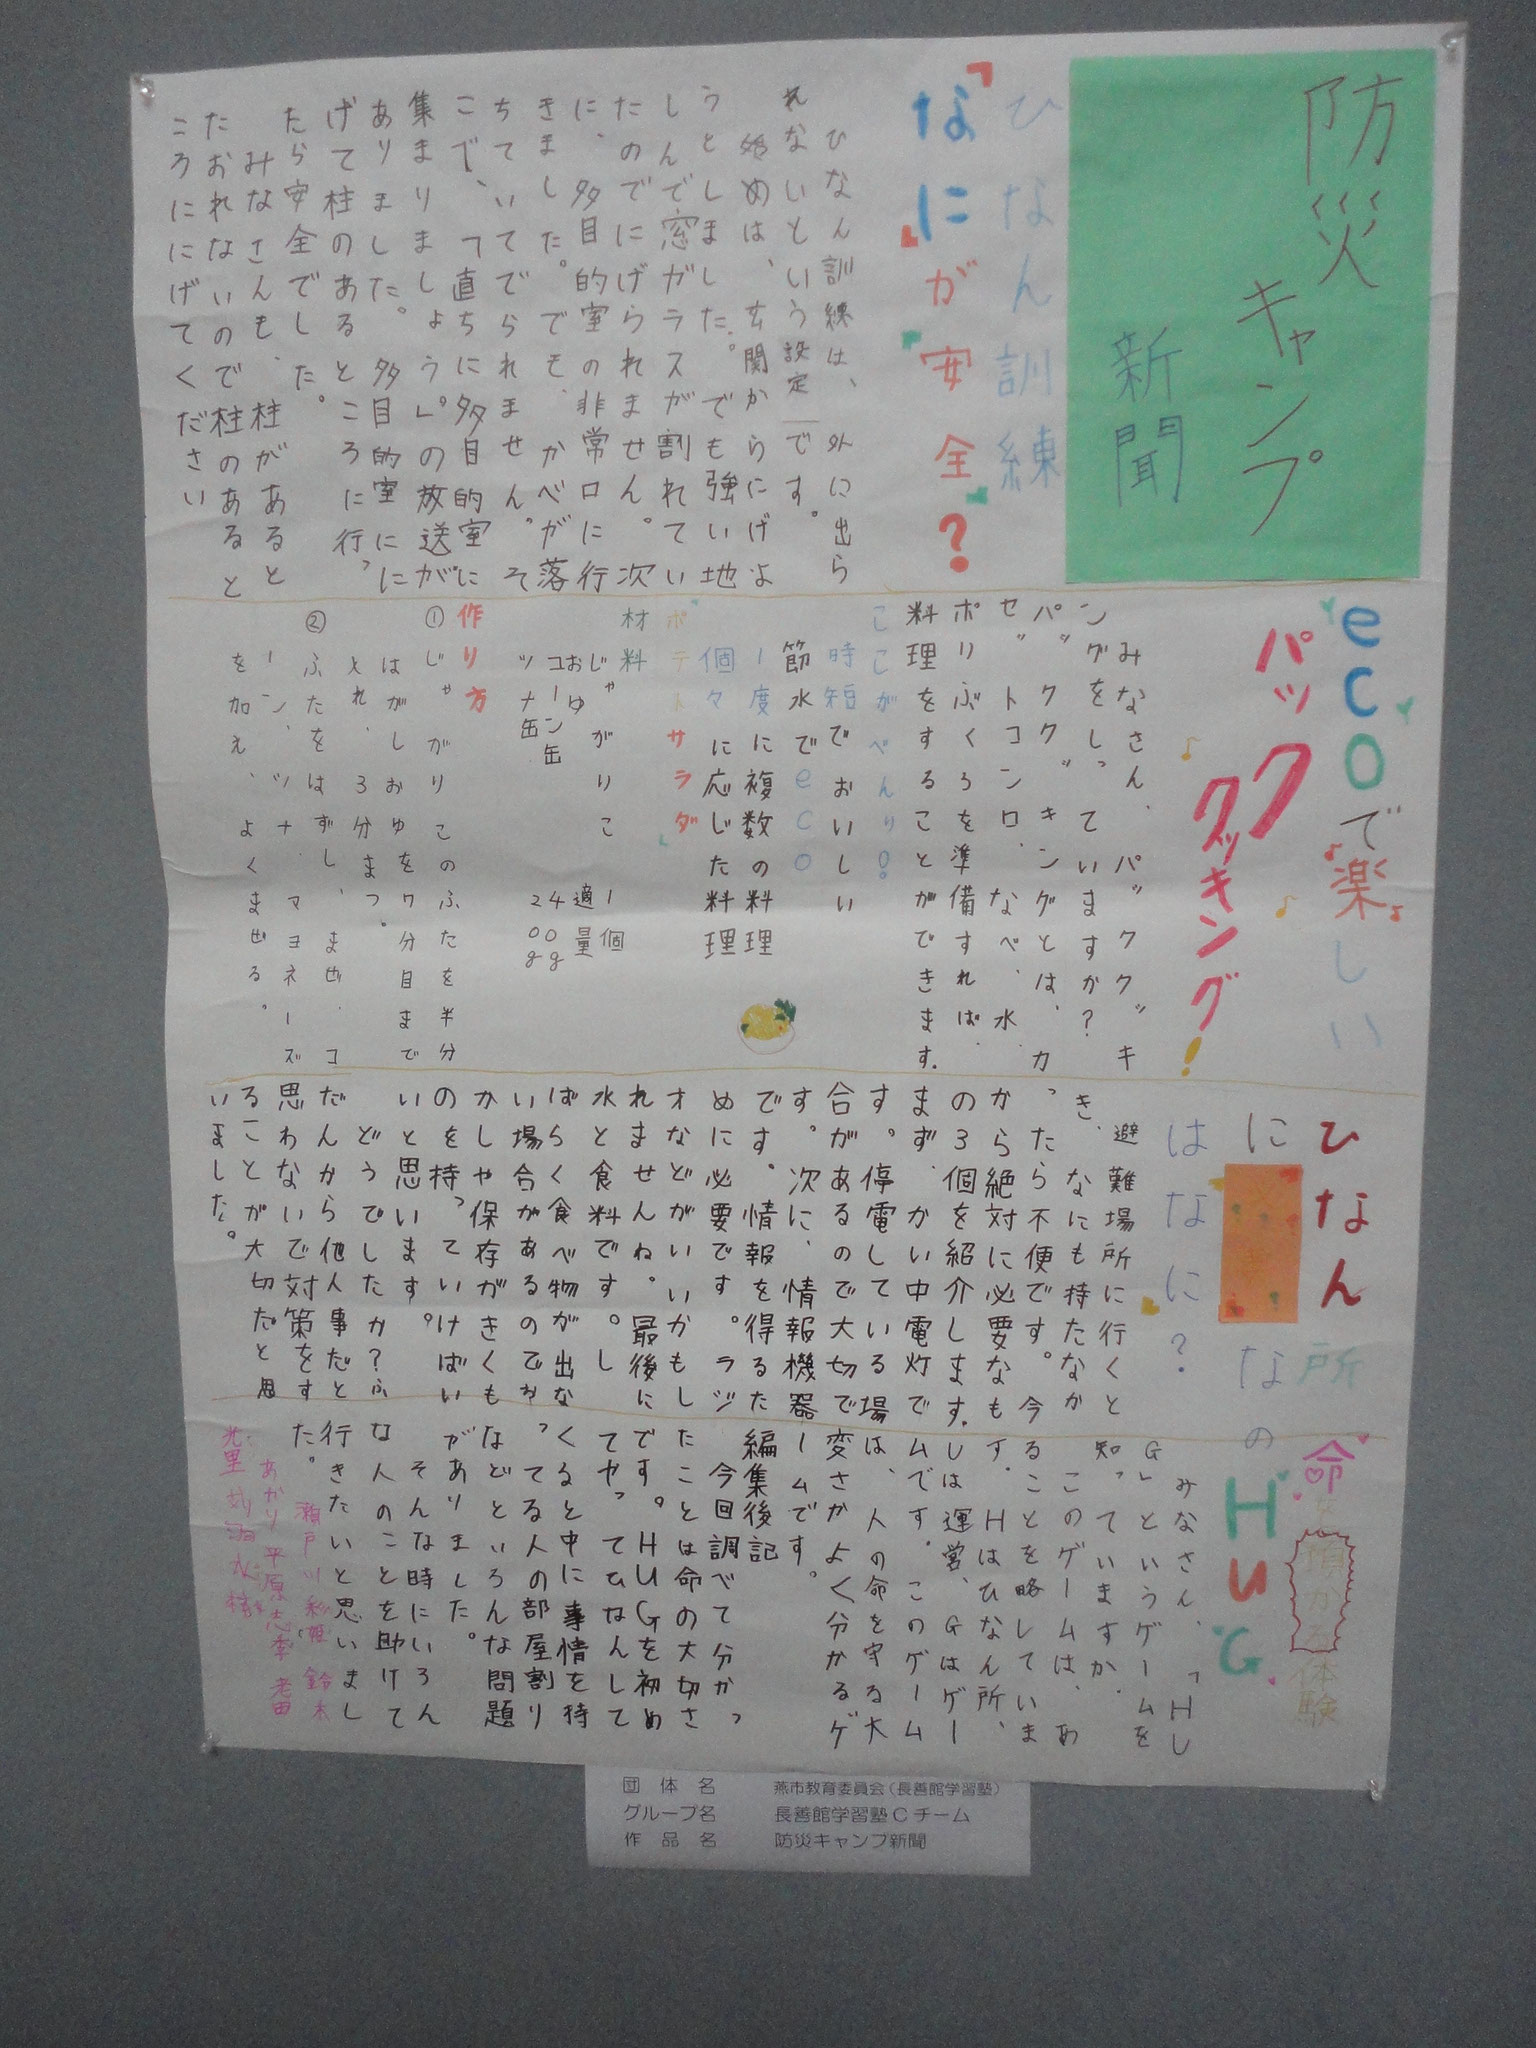 防災
キャンプ
新聞
ひなん訓練
「なに」が安全?
ひなん訓練は、外に出ら
れないという設定です。
始めは、玄関からにげよ
うとしました。でも強い地
しんで窓ガラスが割れてい
たのでにげられません。次
に、多目的室の非常口に行
きました。でも、かべが落
ちていてでられません。そ
こで、「直ちに多目的室に
集まりましょう。」の放送が
ありました。多目的室に
げて柱のあるところに行っ
たら安全でした。
みなさんも、柱があると
たおれないので柱のあると
ころににげてください
ecoで楽しい
パック
クッキング!
みなさん、パッククッキ
ングをしっていますか?
パッククッキングとは、カ
セットコンロ、なべ、水、
ポリぶくろを準備すれば、
料理をすることができます。
ここがべんり!
時短でおいしい
節水でeco
1度に複数の料理
個々に応じた料理
「ポテトサラダ」
材料
じゃがりこ 1個
おゆ 適量
コーン缶 40g
ツナ缶 20g
作り方
①じゃがりこのふたを半分
はがしおゆを7分目まで
入れ、3分まつ。
②ふたをはずし、まぜ、コ
ーン、ツナ、マヨネーズ
を加え、よくまぜる。
ひなん所
に
なの
はなに?
避難場所に行くと
き、なにも持たなか
ったら不便です。今
から絶対に必要なも
の3個を紹介します。
まず、かい中電灯で
す。停電している場
合があるので大切で
す。次に、情報機器
です。情報を得るた
めに必要です。ラジ
オなどがいいかもし
れませんね。最後に
水と食料です。し
ばらく食べ物が出な
い場合があるのでお
かしや保存がきくも
のを持っていけばい
いと思います。
どうでしたか?ふ
だんから他人事だと
思わないで対策をす
ることが大切だと思
いました。
命を預かる体験
HUG
みなさん、「HU
G」というゲームを
知っていますか。
このゲームは、あ
ることを略していま
す。Hはひなん所、
Uは運営、Gはゲー
ムです。このゲーム
は、人の命を守る大
変さがよく分かるゲ
ームです。
編集後記
今回調べて分かっ
たことは命の大切さ
です。HUGを初め
てやってひなんして
くると中に事情を持
ってる人の部屋割り
などといろんな問題
がありました。
そんな時にいろん
な人のことを助けて
行きたいと思いまし
た。
団体名 燕市教育委員会(長善館学習塾)
グループ名 長善館学習塾Cチーム
作品名 防災キャンプ新聞